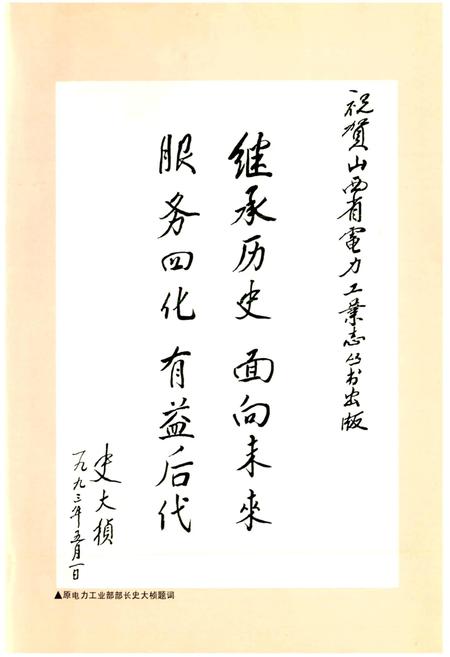 祝贺山西省電力工業志丛书出版
继承历史 面向未來
服务四化 有益后代
史大桢
一九九三年五月一日
▲原电力工业部部长史大桢题词